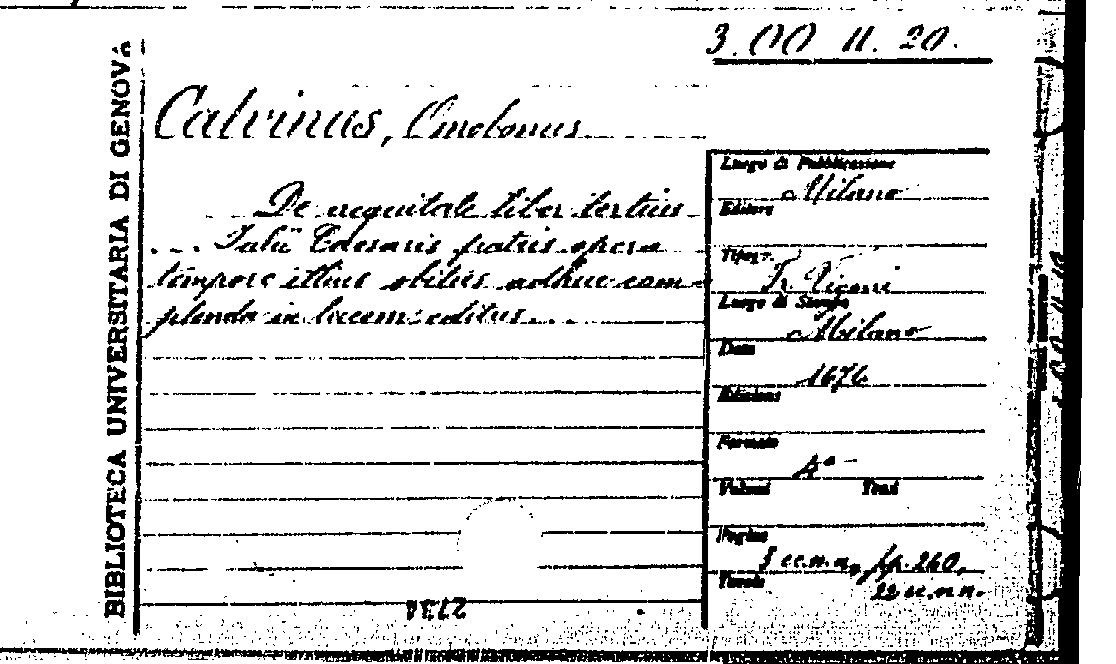 3. OO 11. 20.
BIBLIOTECA UNIVERSITARIA DI GENOVA
Calvinus, Omobonus
De aequitate liber tertius
... Julii Caesaris patris opera
tempore illius obitus adhuc com-
plenda in lucem editus...
Luogo di Pubblicazione
Milano
Editore
Tipogr.
Fr. Vigoni
Luogo di Stampa
Milano
Data
1676
Edizione
Formato
4°
Volumi Tomi
Pagine
cc.n.n., pp. 260,
Tavole
22 cc.n.n.
2734